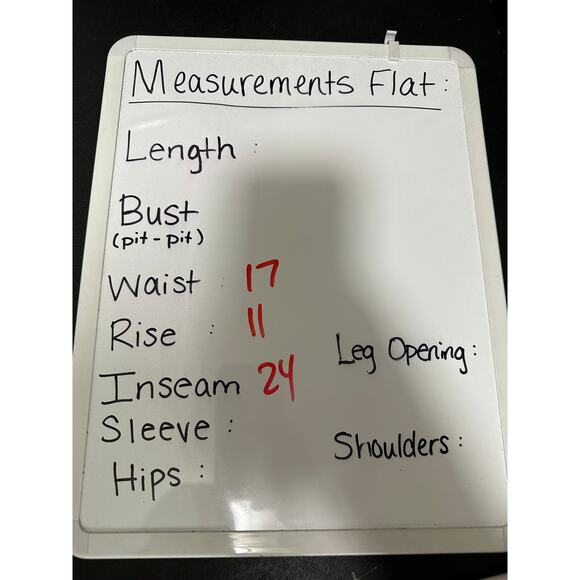 Measurements Flat:
Length :
Bust
(pit-pit)
Waist : 17
Rise : 11
Leg Opening:
Inseam 24
Sleeve :
Shoulders :
Hips :